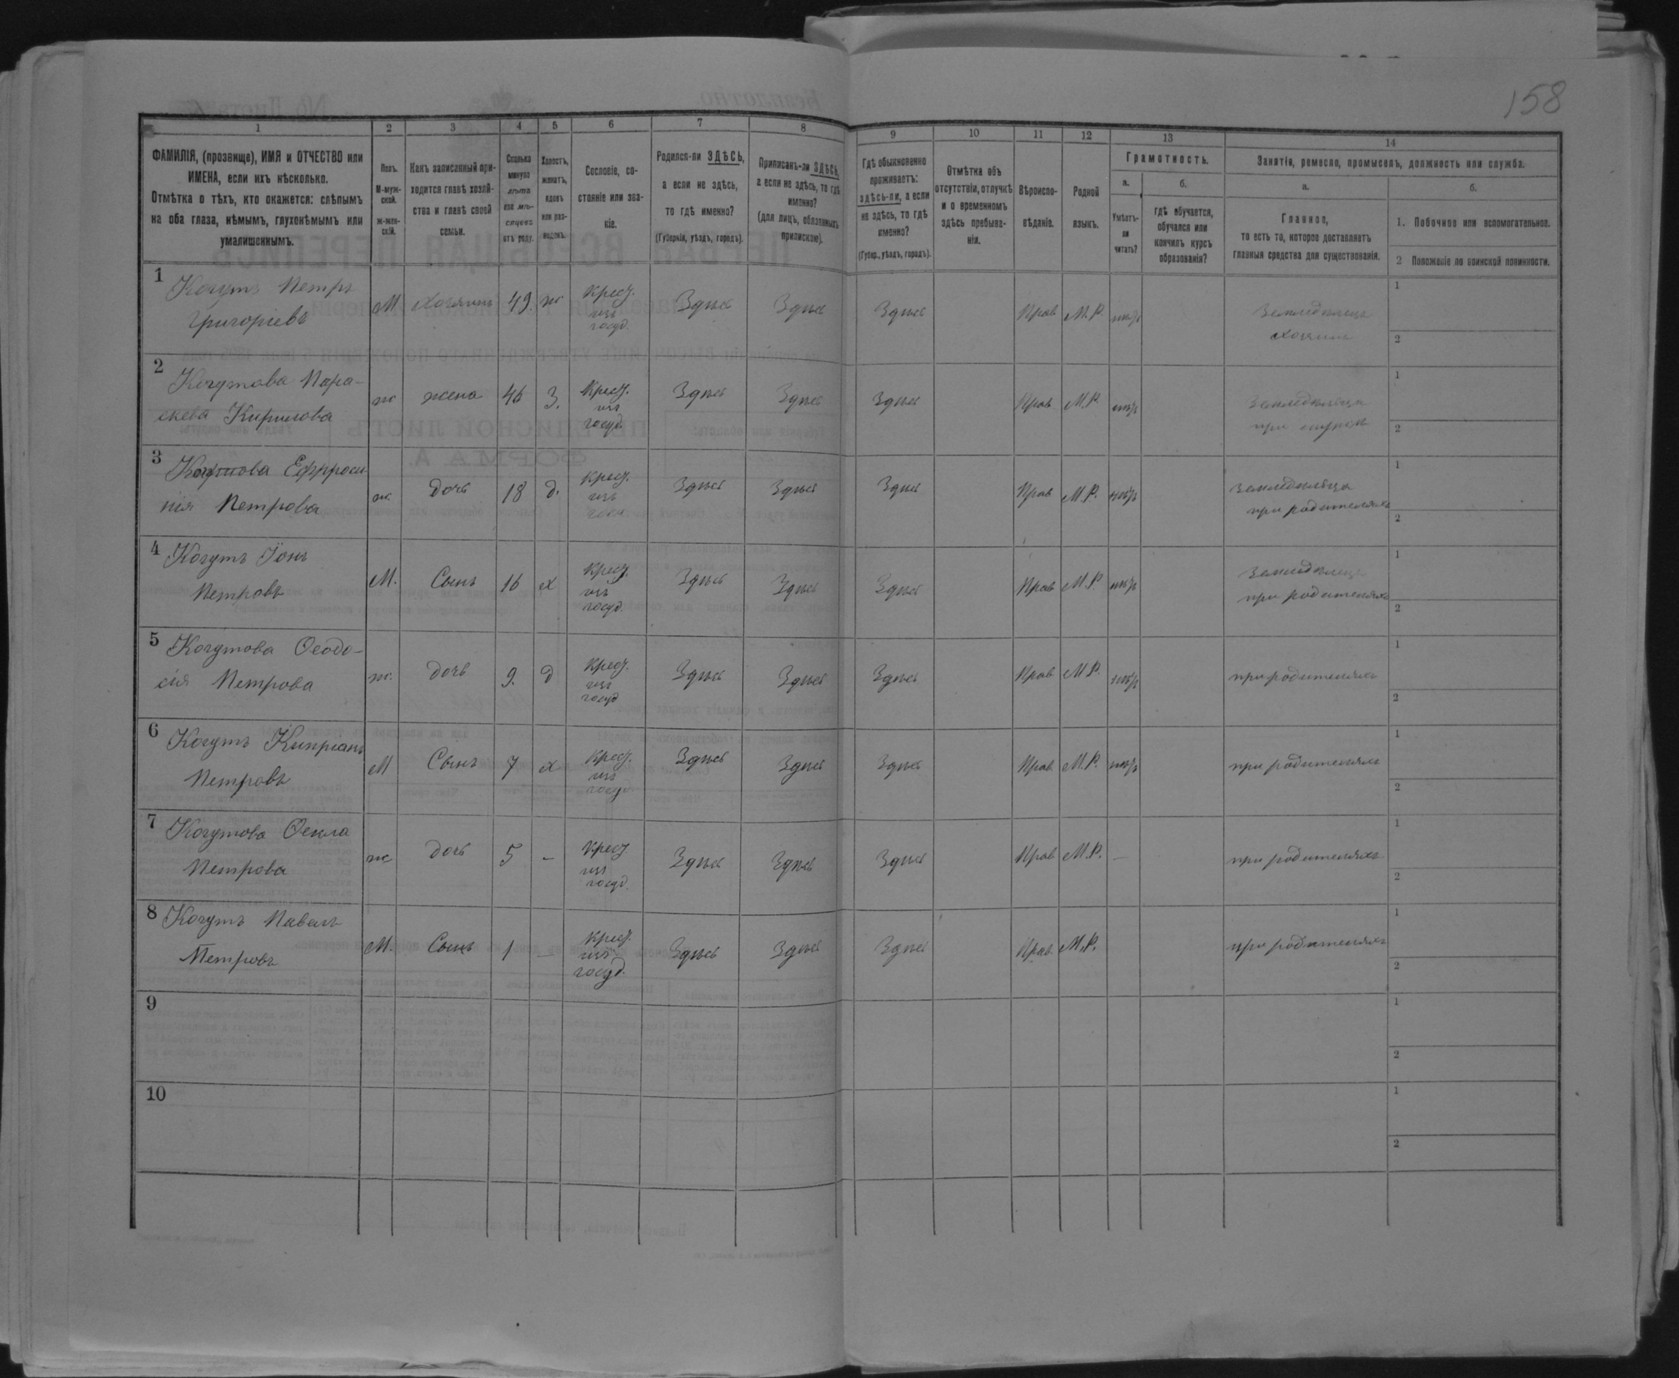 158
1
2
3
4
5
6
7
8
9
10
11
12
13
14
ФАМИЛІЯ, (прозвище), ИМЯ и ОТЧЕСТВО или
ИМЕНА, если ихъ нѣсколько.
Отмѣтка о тѣхъ, кто окажется: слѣпымъ
на оба глаза, нѣмымъ, глухонѣмымъ или
умалишеннымъ.
Полъ.
М-муж-
ской.
ж-жен-
скій.
Какъ записанный при-
ходится главѣ хозяй-
ства и главѣ своей
семьи.
Сколько
минуло
лѣтъ
или мѣ-
сяцевъ
отъ роду.
Холостъ,
женатъ,
вдовъ
или раз-
веденъ.
Сословіе, со-
стояніе или зва-
ніе.
Родился-ли ЗДѢСЬ,
а если не здѣсь,
то гдѣ именно?
(Губернія, уѣздъ, городъ).
Приписанъ-ли ЗДѢСЬ,
а если не здѣсь, то гдѣ
именно?
(для лицъ, обязанныхъ
припискою).
Гдѣ обыкновенно
проживаетъ:
здѣсь-ли, а если
не здѣсь, то гдѣ
именно?
(Губер., уѣздъ, городъ).
Отмѣтка объ
отсутствіи, отлучкѣ
и о временномъ
здѣсь пребыва-
ніи.
Вѣроиспо-
вѣданіе.
Родной
языкъ.
Грамотность.
а.
Умѣетъ-
ли
читать?
б.
гдѣ обучается,
обучался или
кончилъ курсъ
образованія?
Занятіе, ремесло, промыселъ, должность или служба.
а.
Главное,
то есть то, которое доставляетъ
главныя средства для существованія.
б.
1. Побочное или вспомогательное.
2 Положеніе по воинской повинности.
1 Когутъ Петръ
Григоріевъ
М хозяинъ 49 ж
Крест.
изъ
госуд.
Здѣсь Здѣсь Здѣсь Прав М.Р. нѣтъ
Земледѣлецъ
хозяинъ
1
2
2 Когутова Пара-
скева Кирилова
ж жена 46 З.
Крест.
изъ
госуд
Здѣсь Здѣсь Здѣсь Прав М.Р. нѣтъ
Земледѣлецъ
при мужѣ
1
2
3 Когутова Ефроси
нія Петрова
ж дочь 18 д.
Крест.
изъ
Здѣсь Здѣсь Здѣсь Прав М.Р. нѣтъ
Земледѣлецъ
при родителяхъ
1
2
4 Когутъ Іонъ
Петровъ
М. Сынъ 16 х
Крест.
изъ
госуд.
Здѣсь Здѣсь Здѣсь Прав М.Р. нѣтъ
Земледѣлецъ
при родителяхъ
1
2
5 Когутова Ѳеодо-
сія Петрова
ж. дочь 9. д
Крест.
изъ
госуд
Здѣсь Здѣсь Здѣсь Прав М.Р. нѣтъ
при родителяхъ
1
2
6 Когутъ Кипріанъ
Петровъ
М Сынъ 7 х
Крест.
изъ
госуд
Здѣсь Здѣсь Здѣсь Прав М.Р. нѣтъ
при родителяхъ
1
2
7 Когутова Ѳекла
Петрова
ж дочь 5 –
Крест
изъ
госуд.
Здѣсь Здѣсь Здѣсь Прав М.Р. –
при родителяхъ
1
2
8 Когутъ Павелъ
Петровъ
М. Сынъ 1 –
Крест.
изъ
госуд.
Здѣсь Здѣсь Здѣсь Прав М.Р.
при родителяхъ
1
2
9
1
2
10
1
2